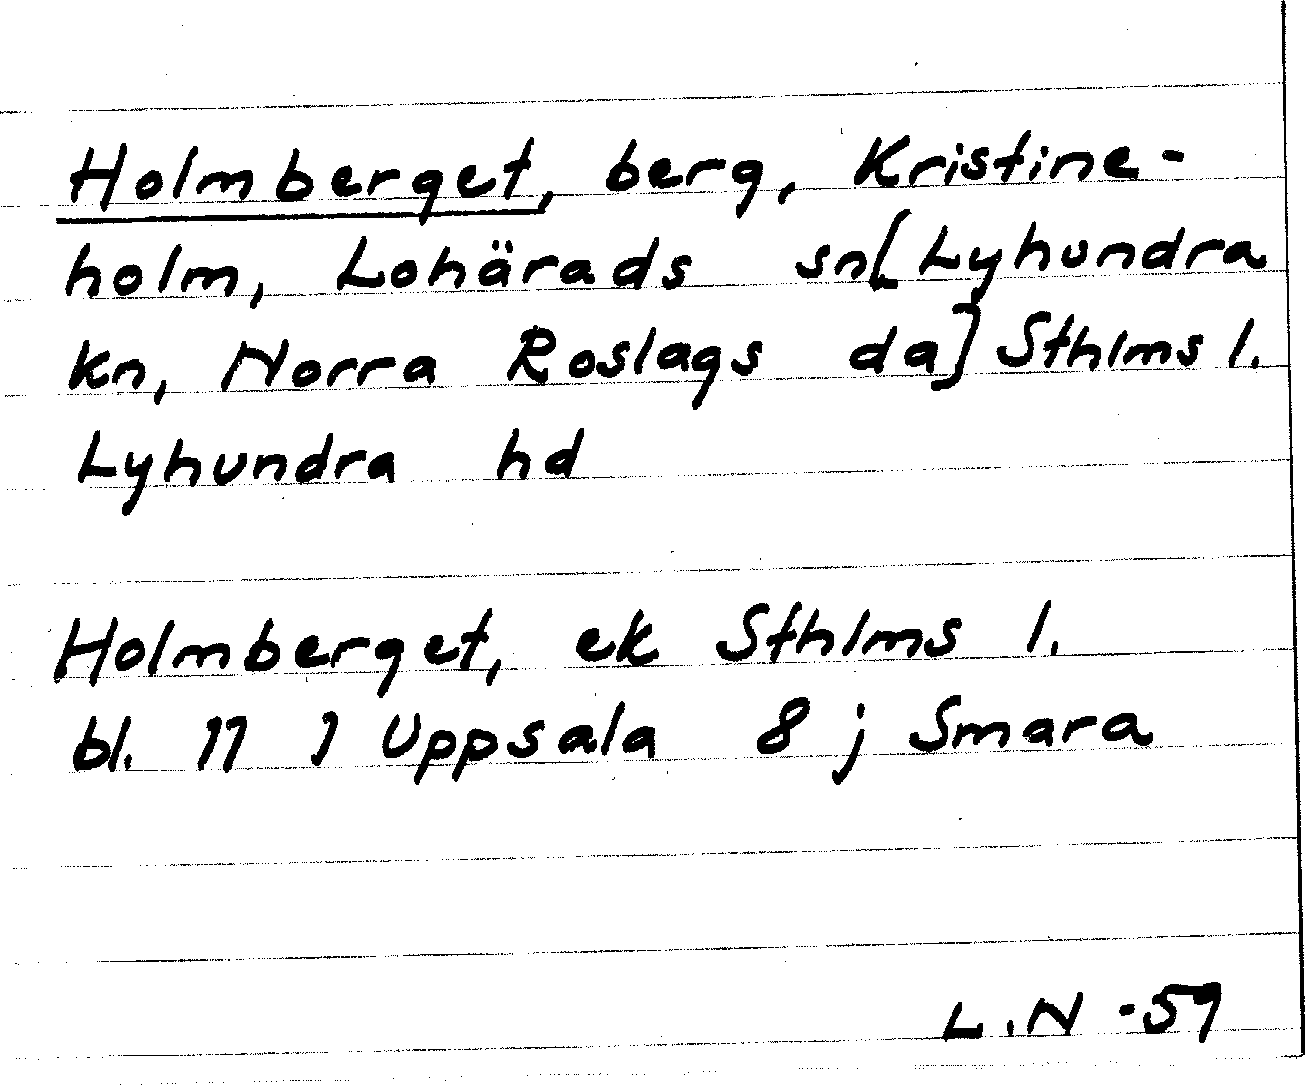 Holmberget, berg, Kristine-
holm, Lohärads sn [Lyhundra
kn, Norra Roslags da] Sthlms l.
Lyhundra hd
Holmberget, ek Sthlms l.
bl. 11 1 Uppsala 8 j Smara
L.N -59